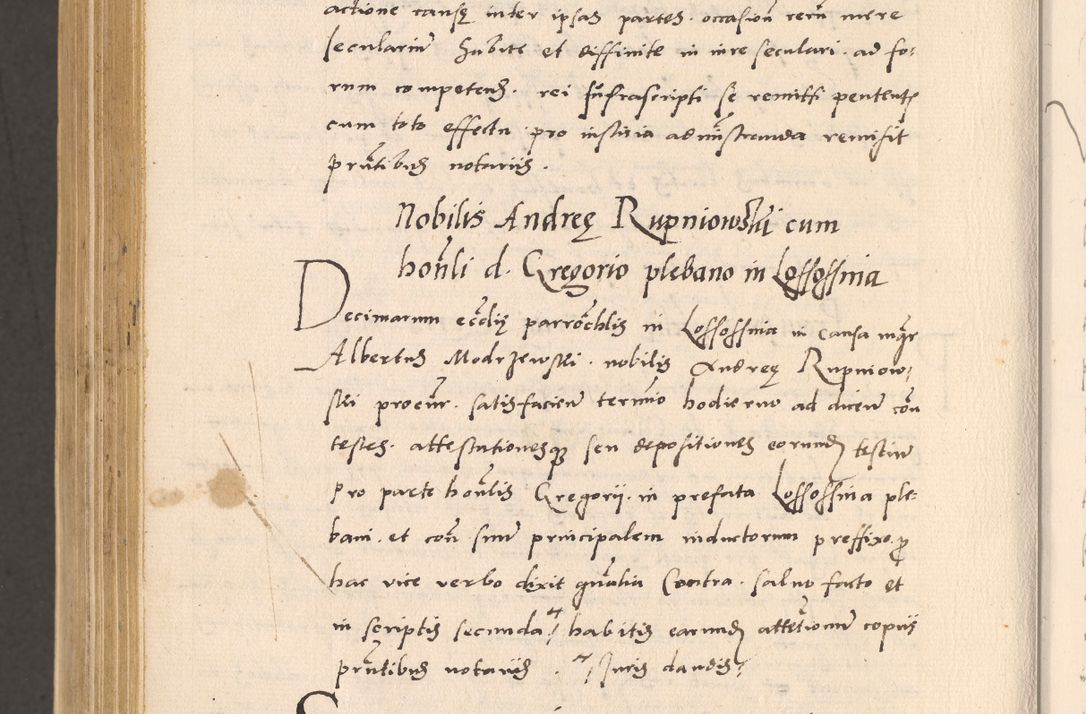 actione causę inter ipsas partes occasion rerum mere
secularium habite et diffinite in iure seculari ad fo-
rum competens rei infrascripti se remitti petentes
cum toto effectu pro iusticia administranda remisit
prntibus notariis.
Nobilis Andreę Rupniowski cum
honli d. Gregorio plebano in Lossossina
Decimarum ecclię parrochlis in Lossossina in causa mgr
Albertus Modrzewski nobilis Andreę Rupniow-
ski procur satisfaciens termino hodierno ad dicen con
testes attestationesque seu depositiones eorundem testium
pro parte honlis Gregorii in prefata Lossossina ple-
bani et con suum principalem inductorum preffixo pro
hac vice verbo dixit gnalia Contra saluo facto et
in scriptis secunda habitis earund attestionum copiis
prntibus notariis Iuris dandis